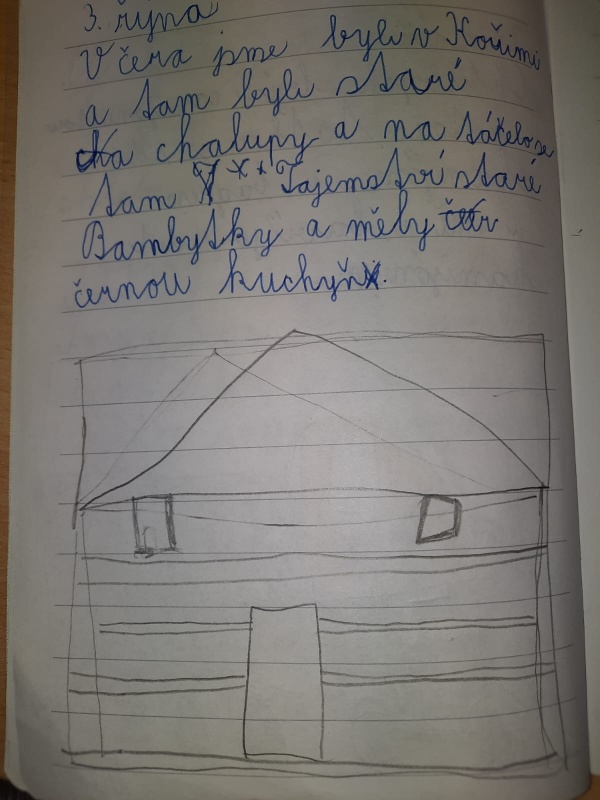 3. října
Včera jsme byli v Kouřimi
a tam byli staré
chalupy a na táčelo se
tam Tajemství staré
Bambytky a měly
černou kuchyň.